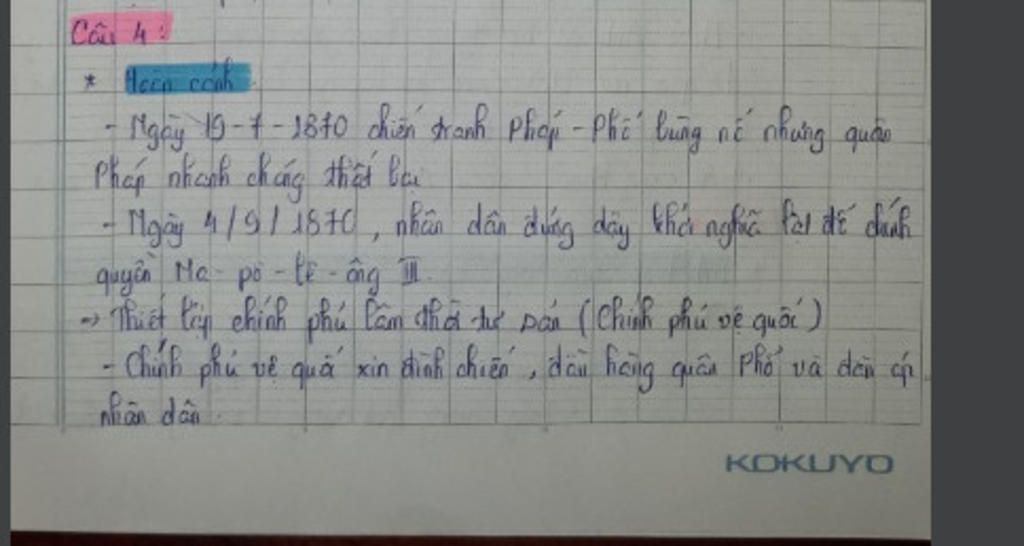 Câu 4 :
* Hoàn cảnh
- Ngày 19-7-1870 chiến tranh Pháp - Phổ bùng nổ nhưng quân
Pháp nhanh chóng thất bại
- Ngày 4/9/1870, nhân dân đứng dậy khởi nghĩa lật đổ chính
quyền Na-pô-lê-ông III.
-> Thiết lập chính phủ lâm thời tư sản (Chính phủ vệ quốc)
- Chính phủ vệ quốc xin đình chiến, đầu hàng quân Phổ và đàn áp
nhân dân.
KOKUYO